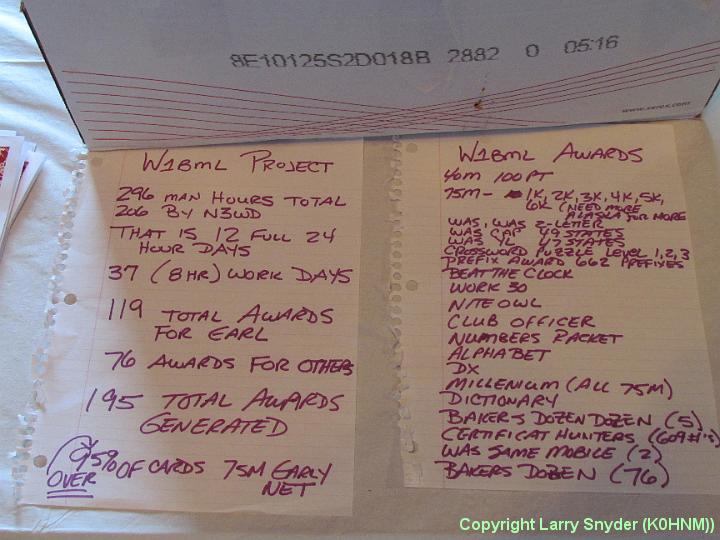 8E10125S2D018B 2882 0 05:16
www.xerox.com
W1BML PROJECT
296 MAN HOURS TOTAL
206 BY N3WD
THAT IS 12 FULL 24
HOUR DAYS
37 (8HR) WORK DAYS
119 TOTAL AWARDS
FOR EARL
76 AWARDS FOR OTHERS
195 TOTAL AWARDS
GENERATED
95% OF CARDS 75M EARLY
OVER NET
W1BML AWARDS
40M 100PT
75M- 1K, 2K, 3K, 4K, 5K,
6K (NEED MORE
ALASKA FOR MORE
WAS, WAS 2-LETTER
WAS CAP 49 STATES
WAS YL 47 STATES
CROSSWORD PUZZLE LEVEL 1,2,3
PREFIX AWARD 662 PREFIXES
BEAT THE CLOCK
WORK 30
NITE OWL
CLUB OFFICER
NUMBERS RACKET
ALPHABET
DX
MILLENIUM (ALL 75M)
DICTIONARY
BAKERS DOZEN DOZEN (5)
CERTIFICAT HUNTERS (609 #'s)
WAS SAME MOBILE (2)
BAKERS DOZEN (76)
Copyright Larry Snyder (K0HNM))